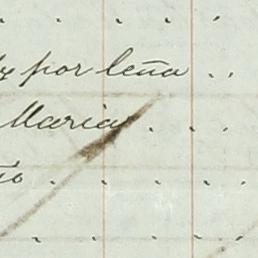 por leña
Maria